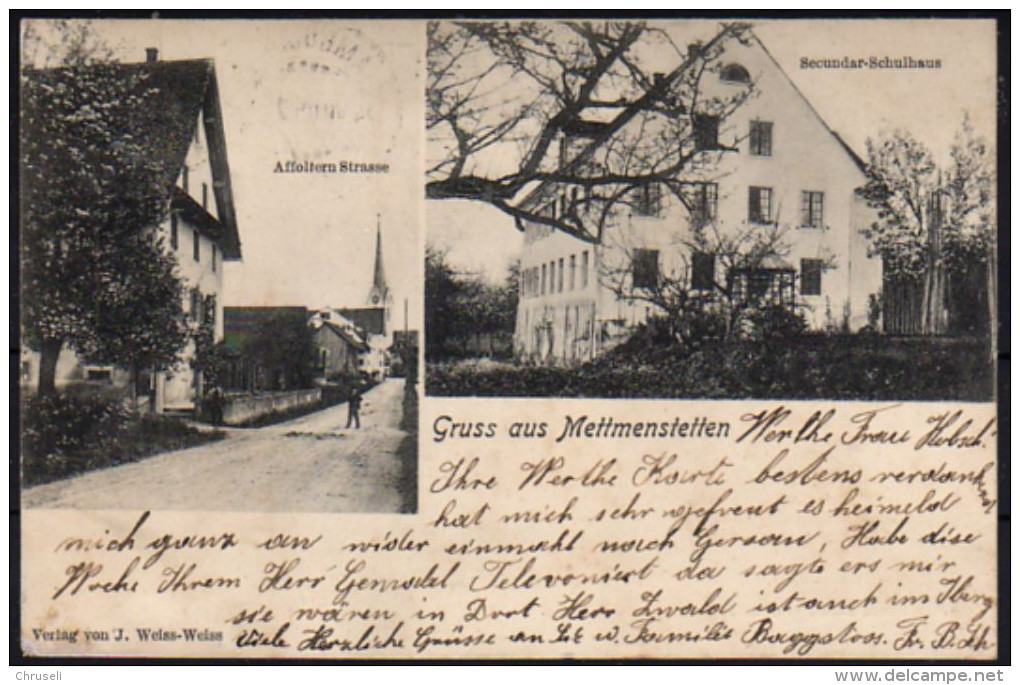 Secundar-Schulhaus
Affoltern Strasse
Gruss aus Mettmenstetten Werthe Frau Hobsch!
Ihre Werthe Karte bestens verdankend
hat mich sehr gefreut es heimeld
mich ganz an wider einmahl nach Gersau, Habe dise
Woche Ihrem Herr Gemahl Televoniert da sagte ers mir
sie wären in Dort Herr Zwald ist auch im
Verlag von J. Weiss-Weiss
Viele Herzliche Grüsse an u. Familie Fr. B.
Chruseli
www.delcampe.net